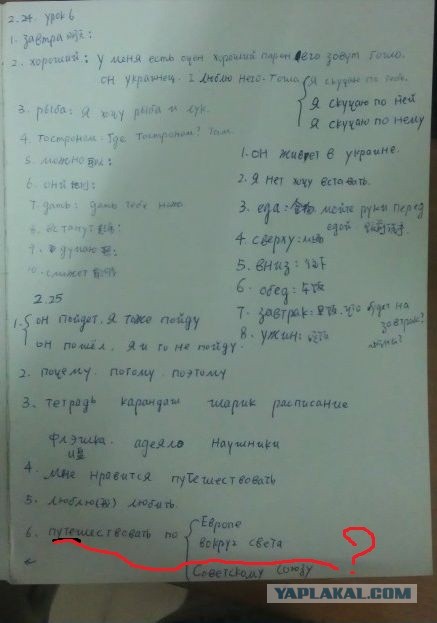 2.24. урок 6
1. завтра
2. хороший: у меня есть очен хороший парен его зовут Гоша.
он украинец. I люблю него. Гоша
Я скучаю по тебе.
Я скучаю по ней
Я скучаю по нему
3. рыба: Я хочу рыба и лук.
4. гостроном: где гостроном? Там.
5. можно
6. они
7. дать: дать тебе
8. встану
9. думаю
10. сможет
1. он живет в украине.
2. Я нет хочу вставать.
3. еда: мойте руки перед
едой
4. сверху:
5. вниз:
6. обед:
7. завтрак: что будет на
завтрак?
8. ужин:
2.25
1. он пойдет. Я тоже пойду
он пошёл. Я и то не пойду.
2. почему. потому. поэтому
3. тетрадь карандаш шарик расписание
флэшка. адеяло наушники
U盘
4. мне нравится путешествовать
5. люблю(爱) любить.
6. путешествовать по
Европе
вокруг света
Советскому Союзу
?
YAPLAKAL.COM